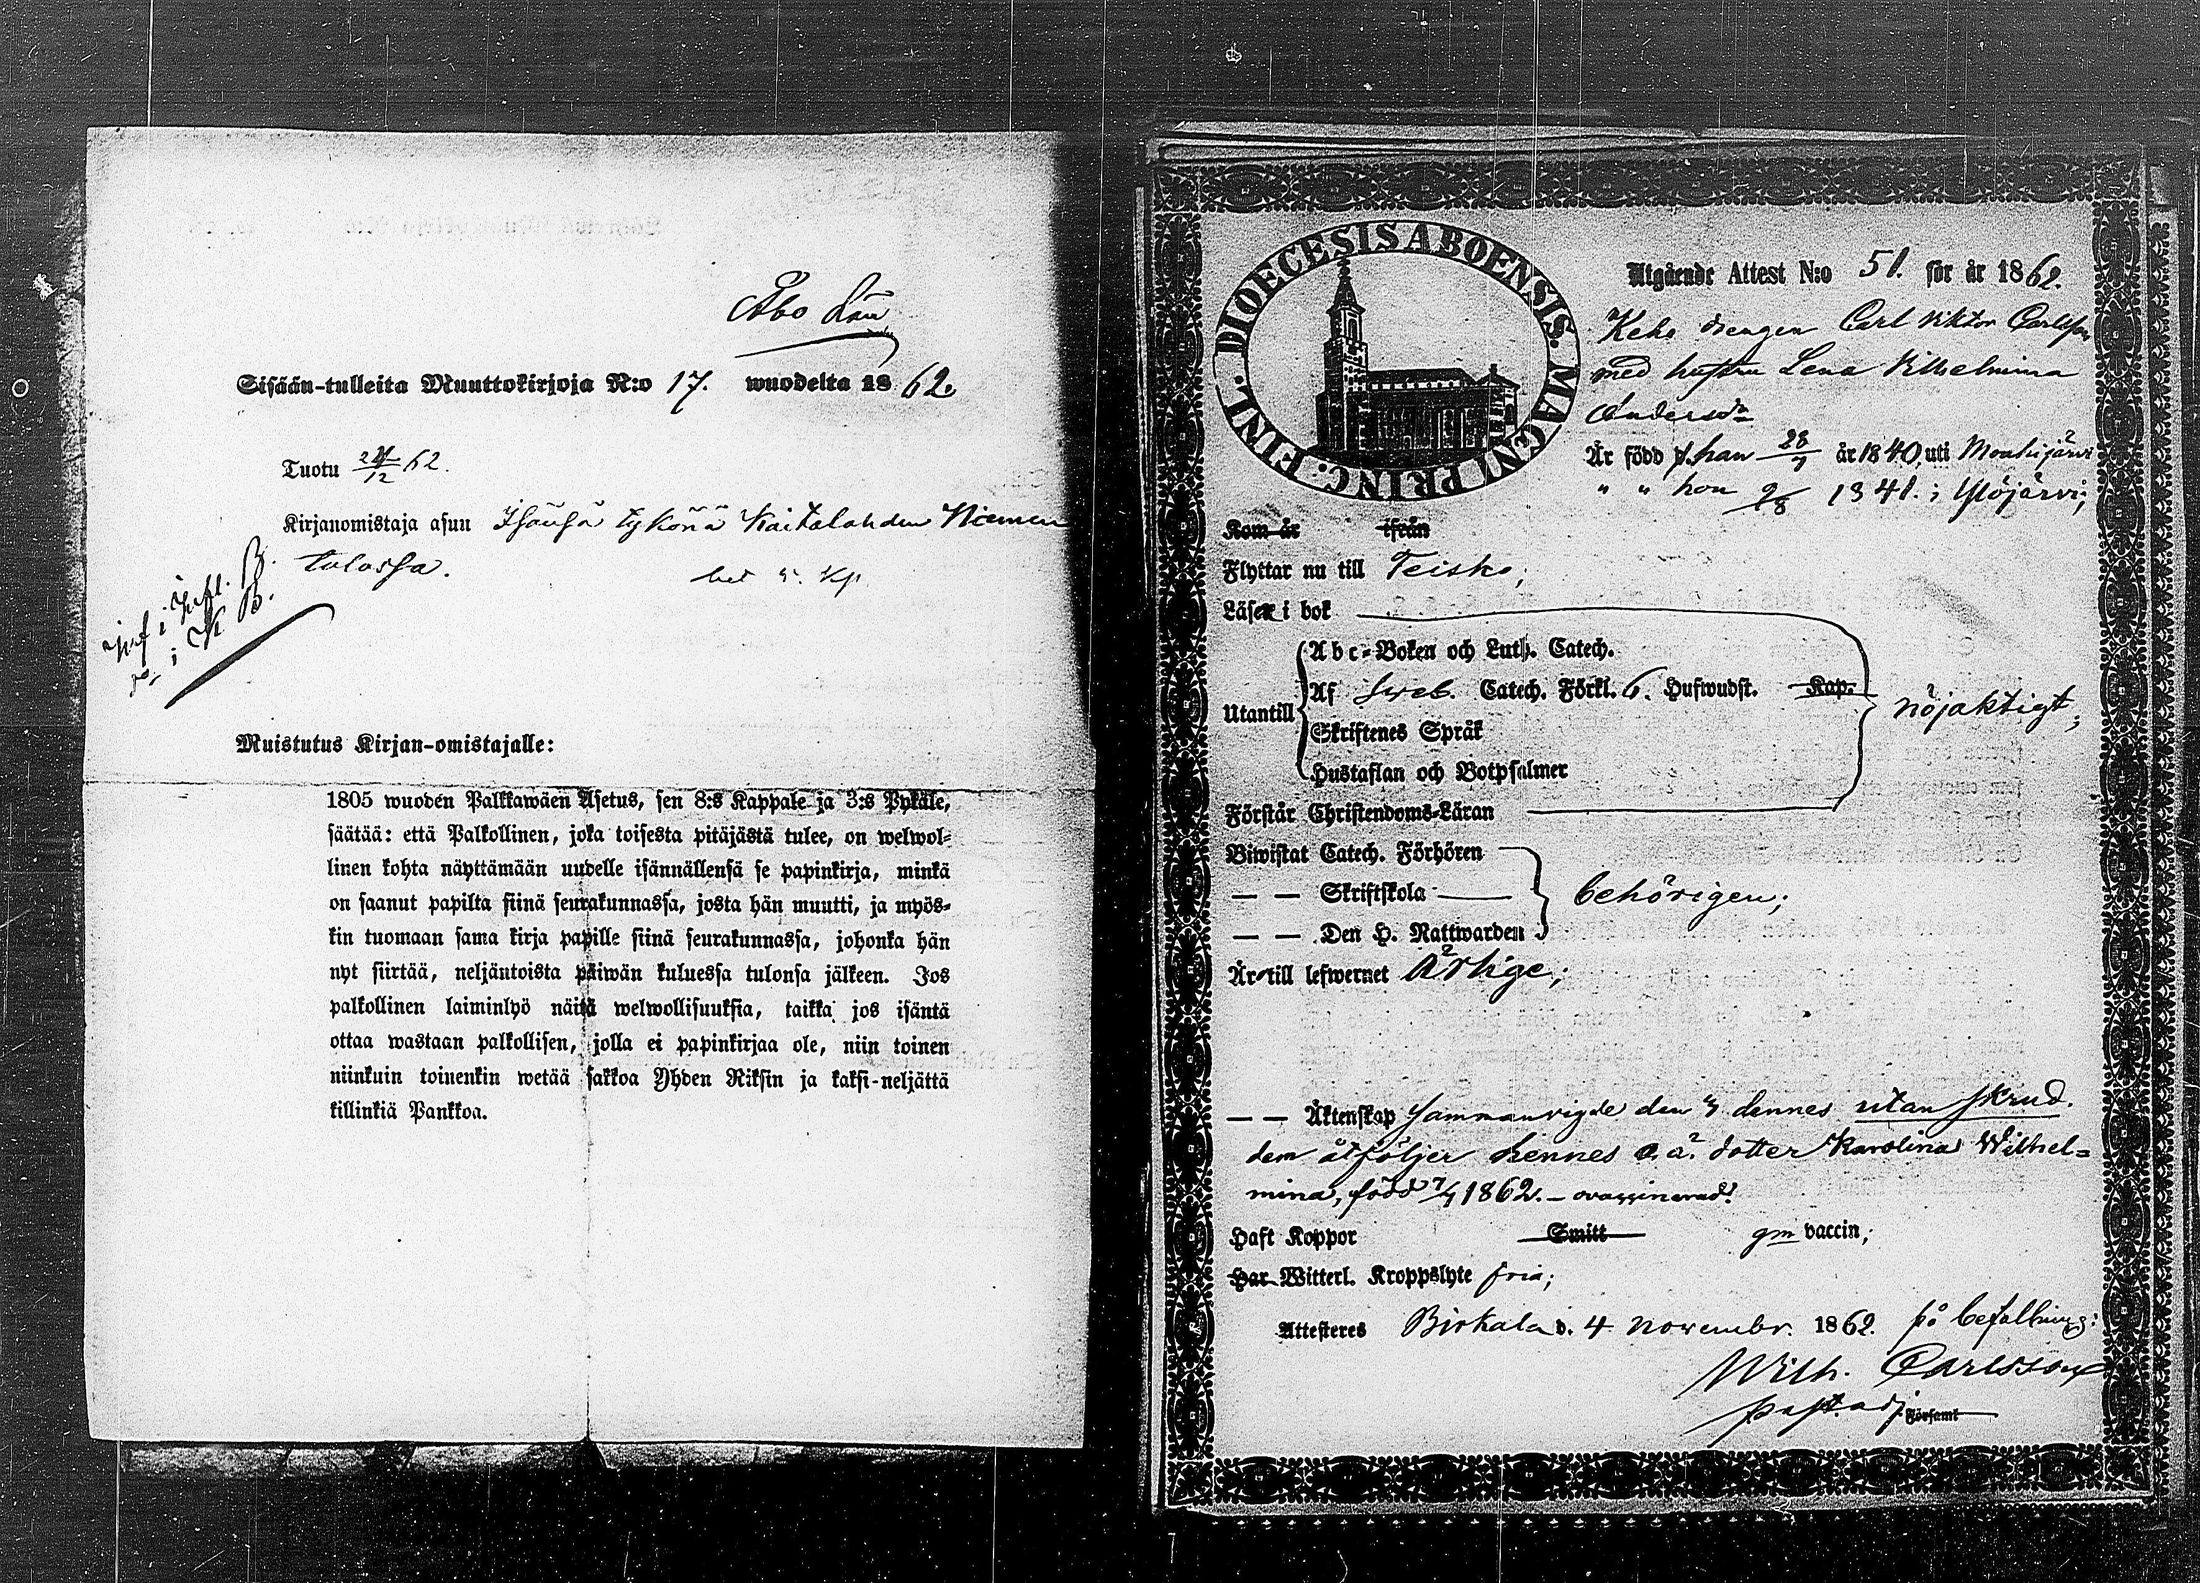 Åbo Län
Sisään-tulleita Muuttokirjoja N:o 17. wuodelta 1862.
Tuotu 12 62.
Kirjanomistaja asuu Isänsä tykönä Kaitalahden Niemen
talossa.
i K B.
Muistutus Kirjan-omistajalle:
1805 wuoden Palkkawäen Asetus, sen 8:s Kappale ja 3:s Pykäle,
säätää: että Palkollinen, joka toisesta pitäjästä tulee, on welwol-
linen kohta näyttämään uudelle isännällensä se papinkirja, minkä
on saanut papilta siinä seurakunnassa, josta hän muutti, ja myös-
kin tuomaan sama kirja papille siinä seurakunnassa, johonka hän
nyt siirtää, neljäntoista päiwän kuluessa tulonsa jälkeen. Jos
palkollinen laiminlyö näitä welwollisuuksia, taikka jos isäntä
ottaa wastaan palkollisen, jolla ei papinkirjaa ole, niin toinen
niinkuin toinenkin wetää sakkoa Yhden Riksin ja kaksi-neljättä
killinkiä Pankkoa.
DIOECESIS ABOENSIS. MAGNI PRINC: FINL.
Utgående Attest N:o 51. för år 1862.
Keho drengen Carl Viktor Carlsson
med hustru Lena Vilhelmina
Andersdr
Är född han 28/7 år 1840, uti Mouhijärvi
" " hon 1841. i Ylöjärvi;
Kom år ifrån
Flyttar nu till Teisko;
Läser i bok
Abc-Boken och Luth. Catech.
Af Sveb. Catech. Förkl. 6. Hufwudst. Kap.
nöjaktigt;
Utantill
Skriftenes Språk
Hustaflan och Botpsalmer
Förstår Christendoms-Läran
Biwistat Catech. Förhören
— — Skriftskola
behörigen;
— — Den H. Nattwarden
Är till lefwernet Ärlige;
— — Äktenskap sammanvigde den dennes utan skrud.
dem åtföljer hennes o. ä. dotter Karolina Wilhel=
mina, född 1862. — ovaccinerad.
Haft Koppor Smitt gm vaccin;
Har Witterl. Kroppslyte fria;
Attesteres Birkala d. 4 Novembr. 1862. på befallning:
Wilh. Carlsson
past. adj. Församl